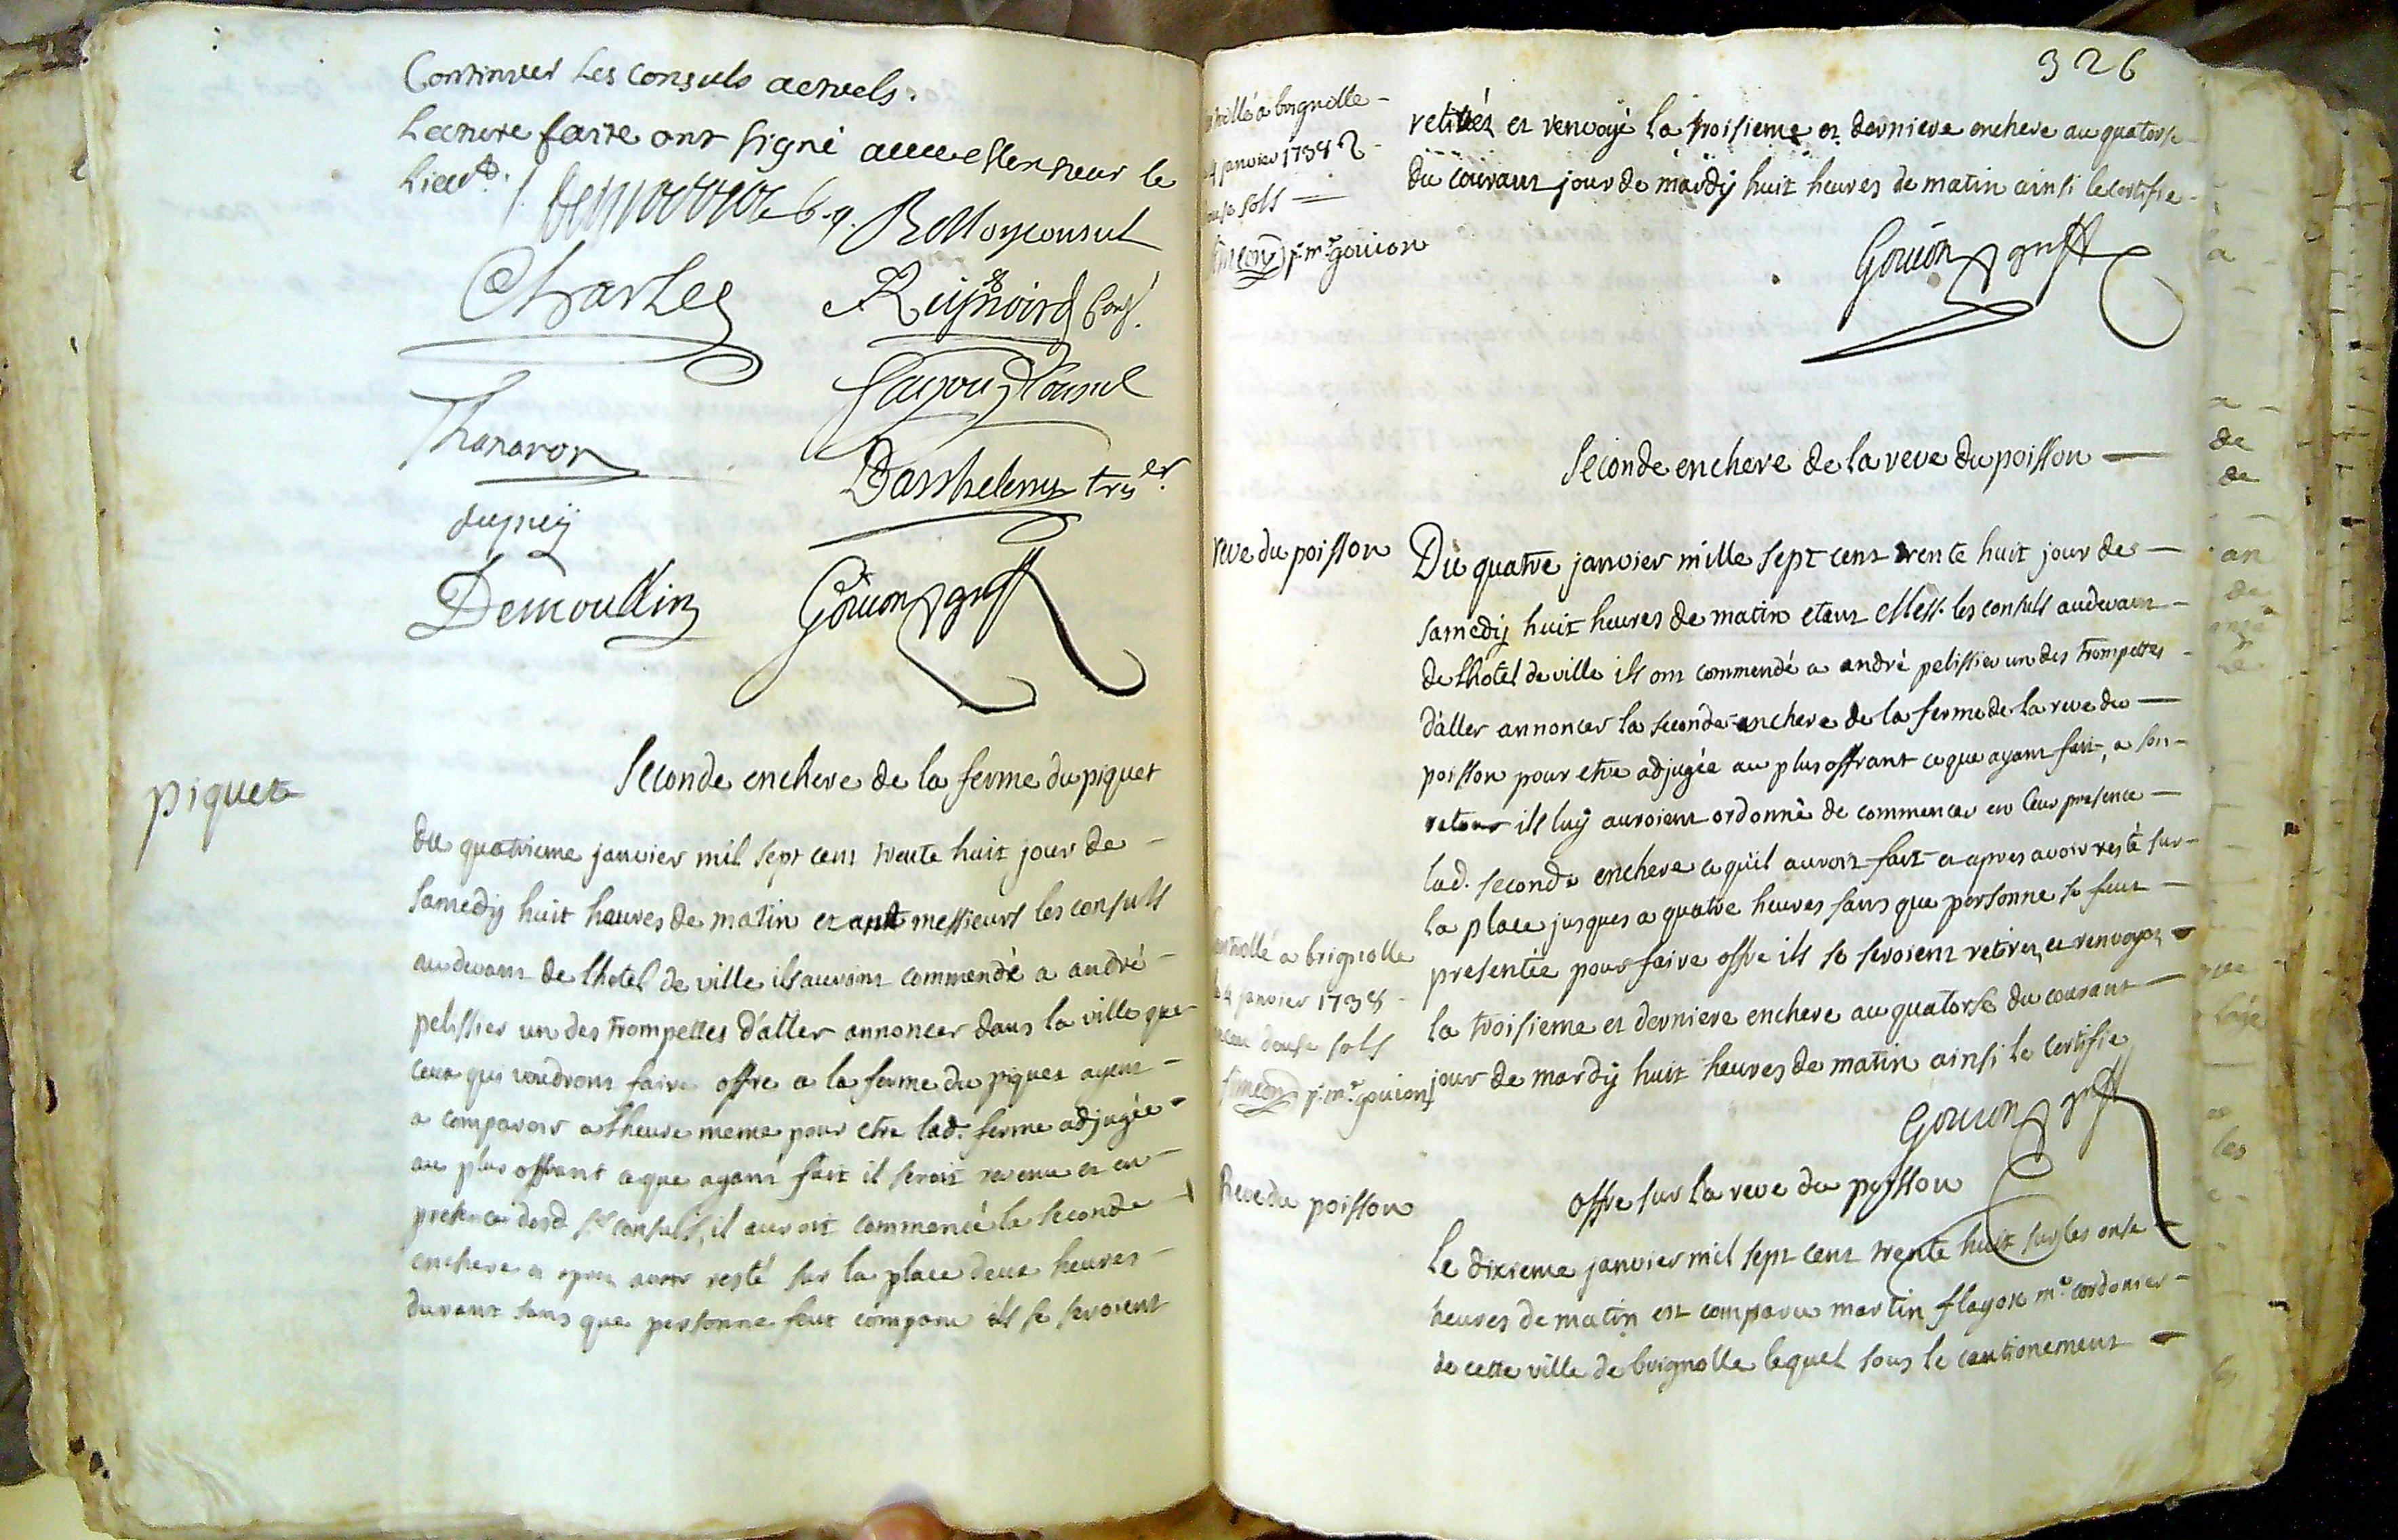 Continuer Les consuls actuels.
Lecture faite ont signé avec Monsieur le
Lieut.
Bellon consul
Charles
Reynoird Cons.
consul
Thanaron
Barthelemy trer.
dupuy
Demoullin
Gouion greff
Seconde enchere de la ferme du piquet
piquet
du quatrieme janvier mil sept cent trente huit jour de
samedy huit heures de matin et ant messieurs les consuls
audevant de lhotel de ville ils auroint commendé a andré
pelissier un des trompettes d'aller annoncer dans la ville que
ceux qui voudront faire offre a la ferme du piquet ayent
a comparoir a lheure meme pour etre lad. ferme adjugée
au plus offrant ce que ayant fait il seroit revenu et en
presence desd. srs consuls, il auroit commencé la seconde
enchere et apres avoir resté sur la place deux heures
durant sans que personne feut comparu ils se seroient
326
retirés et renvoyé la troisieme et derniere enchere au quatorse
du courant jour de mardy huit heures de matin ainsi le certifie
Gouion greff
a brignolle
4 janvier 1738
sols
simeon p. mr. gouion
Seconde enchere de la reve du poisson
reve du poisson
Du quatre janvier mille sept cent trente huit jour de
samedy huit heures de matin etant Mess. les consuls audevant
de lhotel de ville ils ont commendé a andré pelissier un des trompettes
d'aller annoncer la seconde enchere de la ferme de la reve du
poisson pour etre adjugée au plus offrant ce que ayant fait, a son
retour ils luy auroient ordonné de commencer en leur presence
lad. seconde enchere ce qu'il auroit fait et apres avoir resté sur
la place jusques a quatre heures sans que personne se feut
presentée pour faire offre ils se seroient retirez et renvoyez
la troisieme et derniere enchere au quatorse du courant
jour de mardy huit heures de matin ainsi le certifie
Gouion greff
controllé a brignolle
14 janvier 1738
douse sols
simeon p. mr. gouion
Reve du poisson
offre sur la reve du poisson
Le dixieme janvier mil sept cent trente huit sur les onse
heures de matin est comparu martin flayox me. cordonier
de cette ville de brignolle lequel sous le cautionement